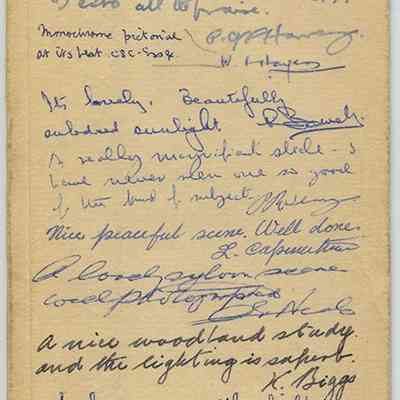 I echo all the praise.
Monochrome pictorial
at its best
W. Hayes
Its lovely. Beautifully
subdued sunlight.
A really magnificent slide - I
have never seen one so good
of this kind of subject.
Nice peaceful scene. Well done.
L. Carpenter
A lovely sylvan scene
well photographed
A nice woodland study.
and the lighting is superb.
K. Biggs